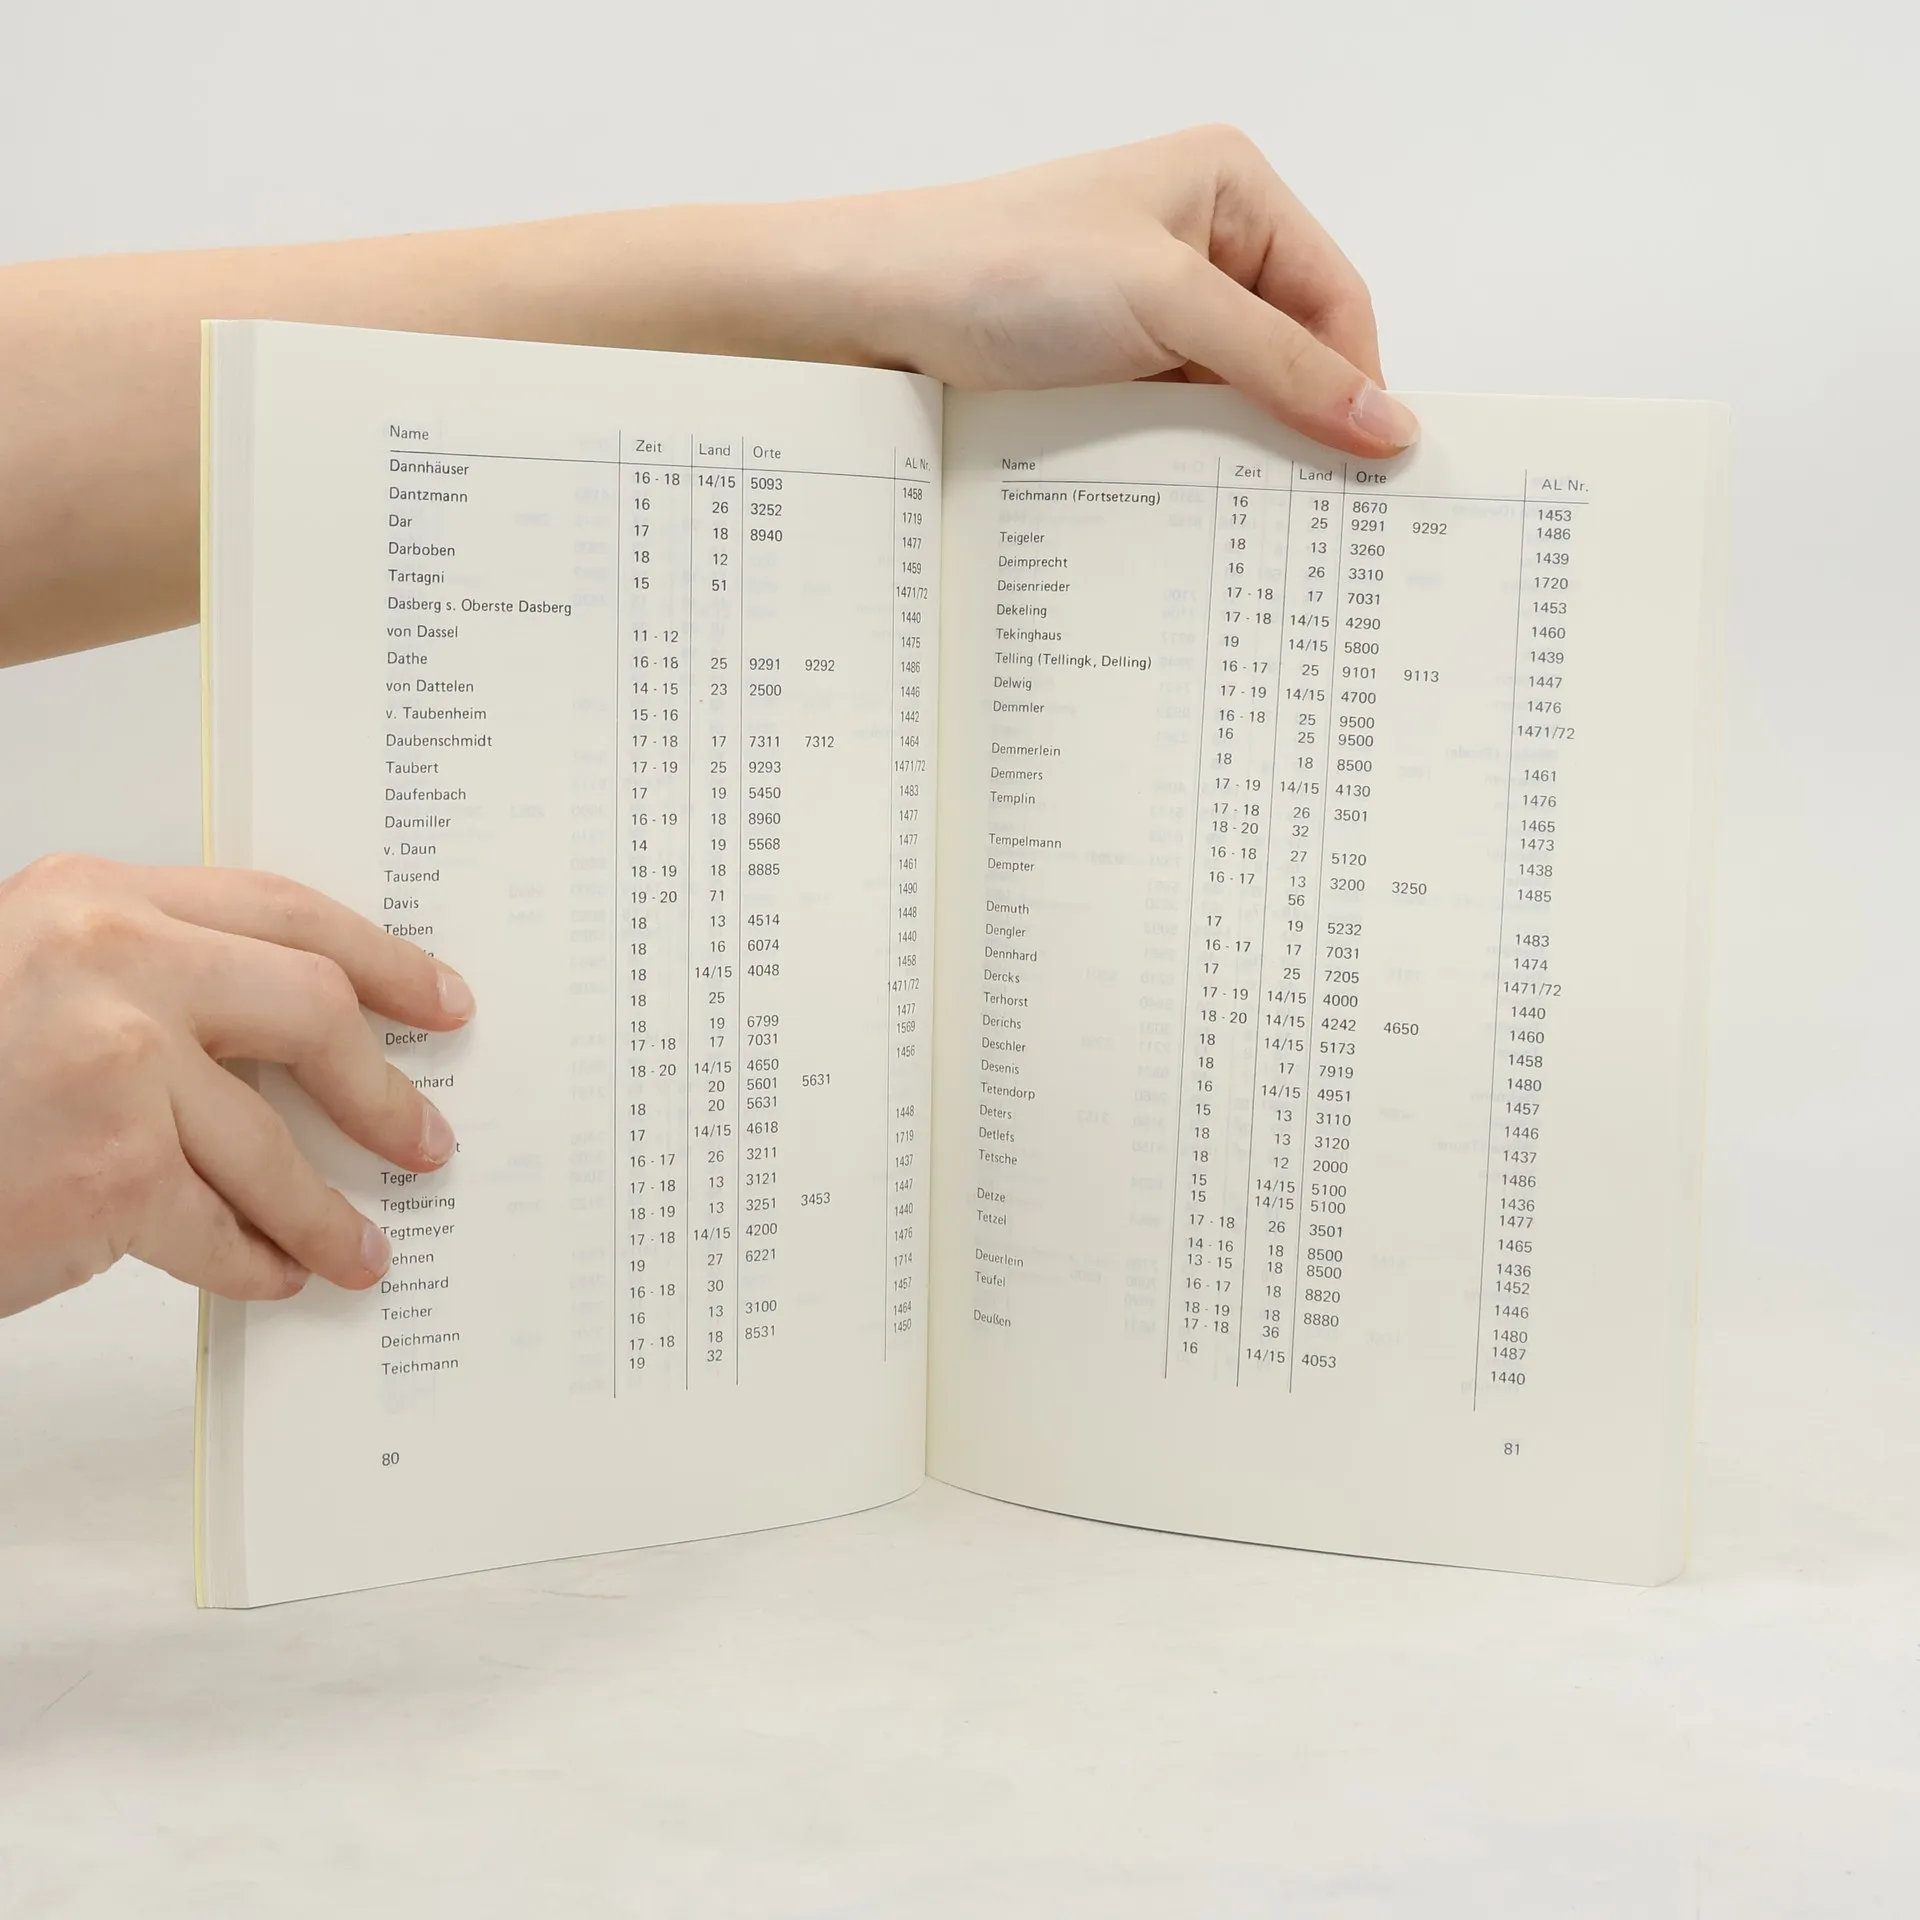 Name Zeit Land Orte AL Nr.
Dannhäuser 16 - 18 14/15 5093 1458
Dantzmann 16 26 3252 1719
Dar 17 18 8940 1477
Darboben 18 12 1459
Tartagni 15 51 1471/72
Dasberg s. Oberste Dasberg 1440
von Dassel 11 - 12 1475
Dathe 16 - 18 25 9291 9292 1486
von Dattelen 14 - 15 23 2500 1446
v. Taubenheim 15 - 16 1442
Daubenschmidt 17 - 18 17 7311 7312 1464
Taubert 17 - 19 25 9293 1471/72
Daufenbach 17 19 5450 1483
Daumiller 16 - 19 18 8960 1477
v. Daun 14 19 5568 1477
Tausend 18 - 19 18 8885 1461
Davis 19 - 20 71 1490
Tebben 18 13 4514 1448
18 16 6074 1440
18 14/15 4048 1458
18 25 1471/72
Decker 18 19 6799 1477
17 - 18 17 7031 1569
18 - 20 14/15 4650 1456
20 5601 5631
18 20 5631
17 14/15 4618 1448
16 - 17 26 3211 1719
Teger 17 - 18 13 3121 1437
Tegtbüring 18 - 19 13 3251 3453 1447
Tegtmeyer 17 - 18 14/15 4200 1440
ehnen 19 27 6221 1476
Dehnhard 16 - 18 30 1714
Teicher 16 13 3100 1457
Deichmann 17 - 18 18 8531 1464
Teichmann 19 32 1450
80
Name Zeit Land Orte AL Nr.
Teichmann (Fortsetzung) 16 18 8670 1453
17 25 9291 9292 1486
Teigeler 18 13 3260 1439
Deimprecht 16 26 3310 1720
Deisenrieder 17 - 18 17 7031 1453
Dekeling 17 - 18 14/15 4290 1460
Tekinghaus 19 14/15 5800 1439
Telling (Tellingk, Delling) 16 - 17 25 9101 9113 1447
Delwig 17 - 19 14/15 4700 1476
Demmler 16 - 18 25 9500 1471/72
16 25 9500
Demmerlein 18 18 8500 1461
Demmers 17 - 19 14/15 4130 1476
Templin 17 - 18 26 3501 1465
18 - 20 32 1473
Tempelmann 16 - 18 27 5120 1438
Dempter 16 - 17 13 3200 3250 1485
56
Demuth 17 19 5232 1483
Dengler 16 - 17 17 7031 1474
Dennhard 17 25 7205 1471/72
Dercks 17 - 19 14/15 4000 1440
Terhorst 18 - 20 14/15 4242 4650 1460
Derichs 18 14/15 5173 1458
Deschler 18 17 7919 1480
Desenis 16 14/15 4951 1457
Tetendorp 15 13 3110 1446
Deters 18 13 3120 1437
Detlefs 18 12 2000 1486
Tetsche 15 14/15 5100 1436
15 14/15 5100 1477
Detze 17 - 18 26 3501 1465
Tetzel 14 - 16 18 8500 1436
13 - 15 18 8500 1452
Deuerlein 16 - 17 18 8820 1446
Teufel 18 - 19 18 8880 1480
17 - 18 36 1487
Deußen 16 14/15 4053 1440
81